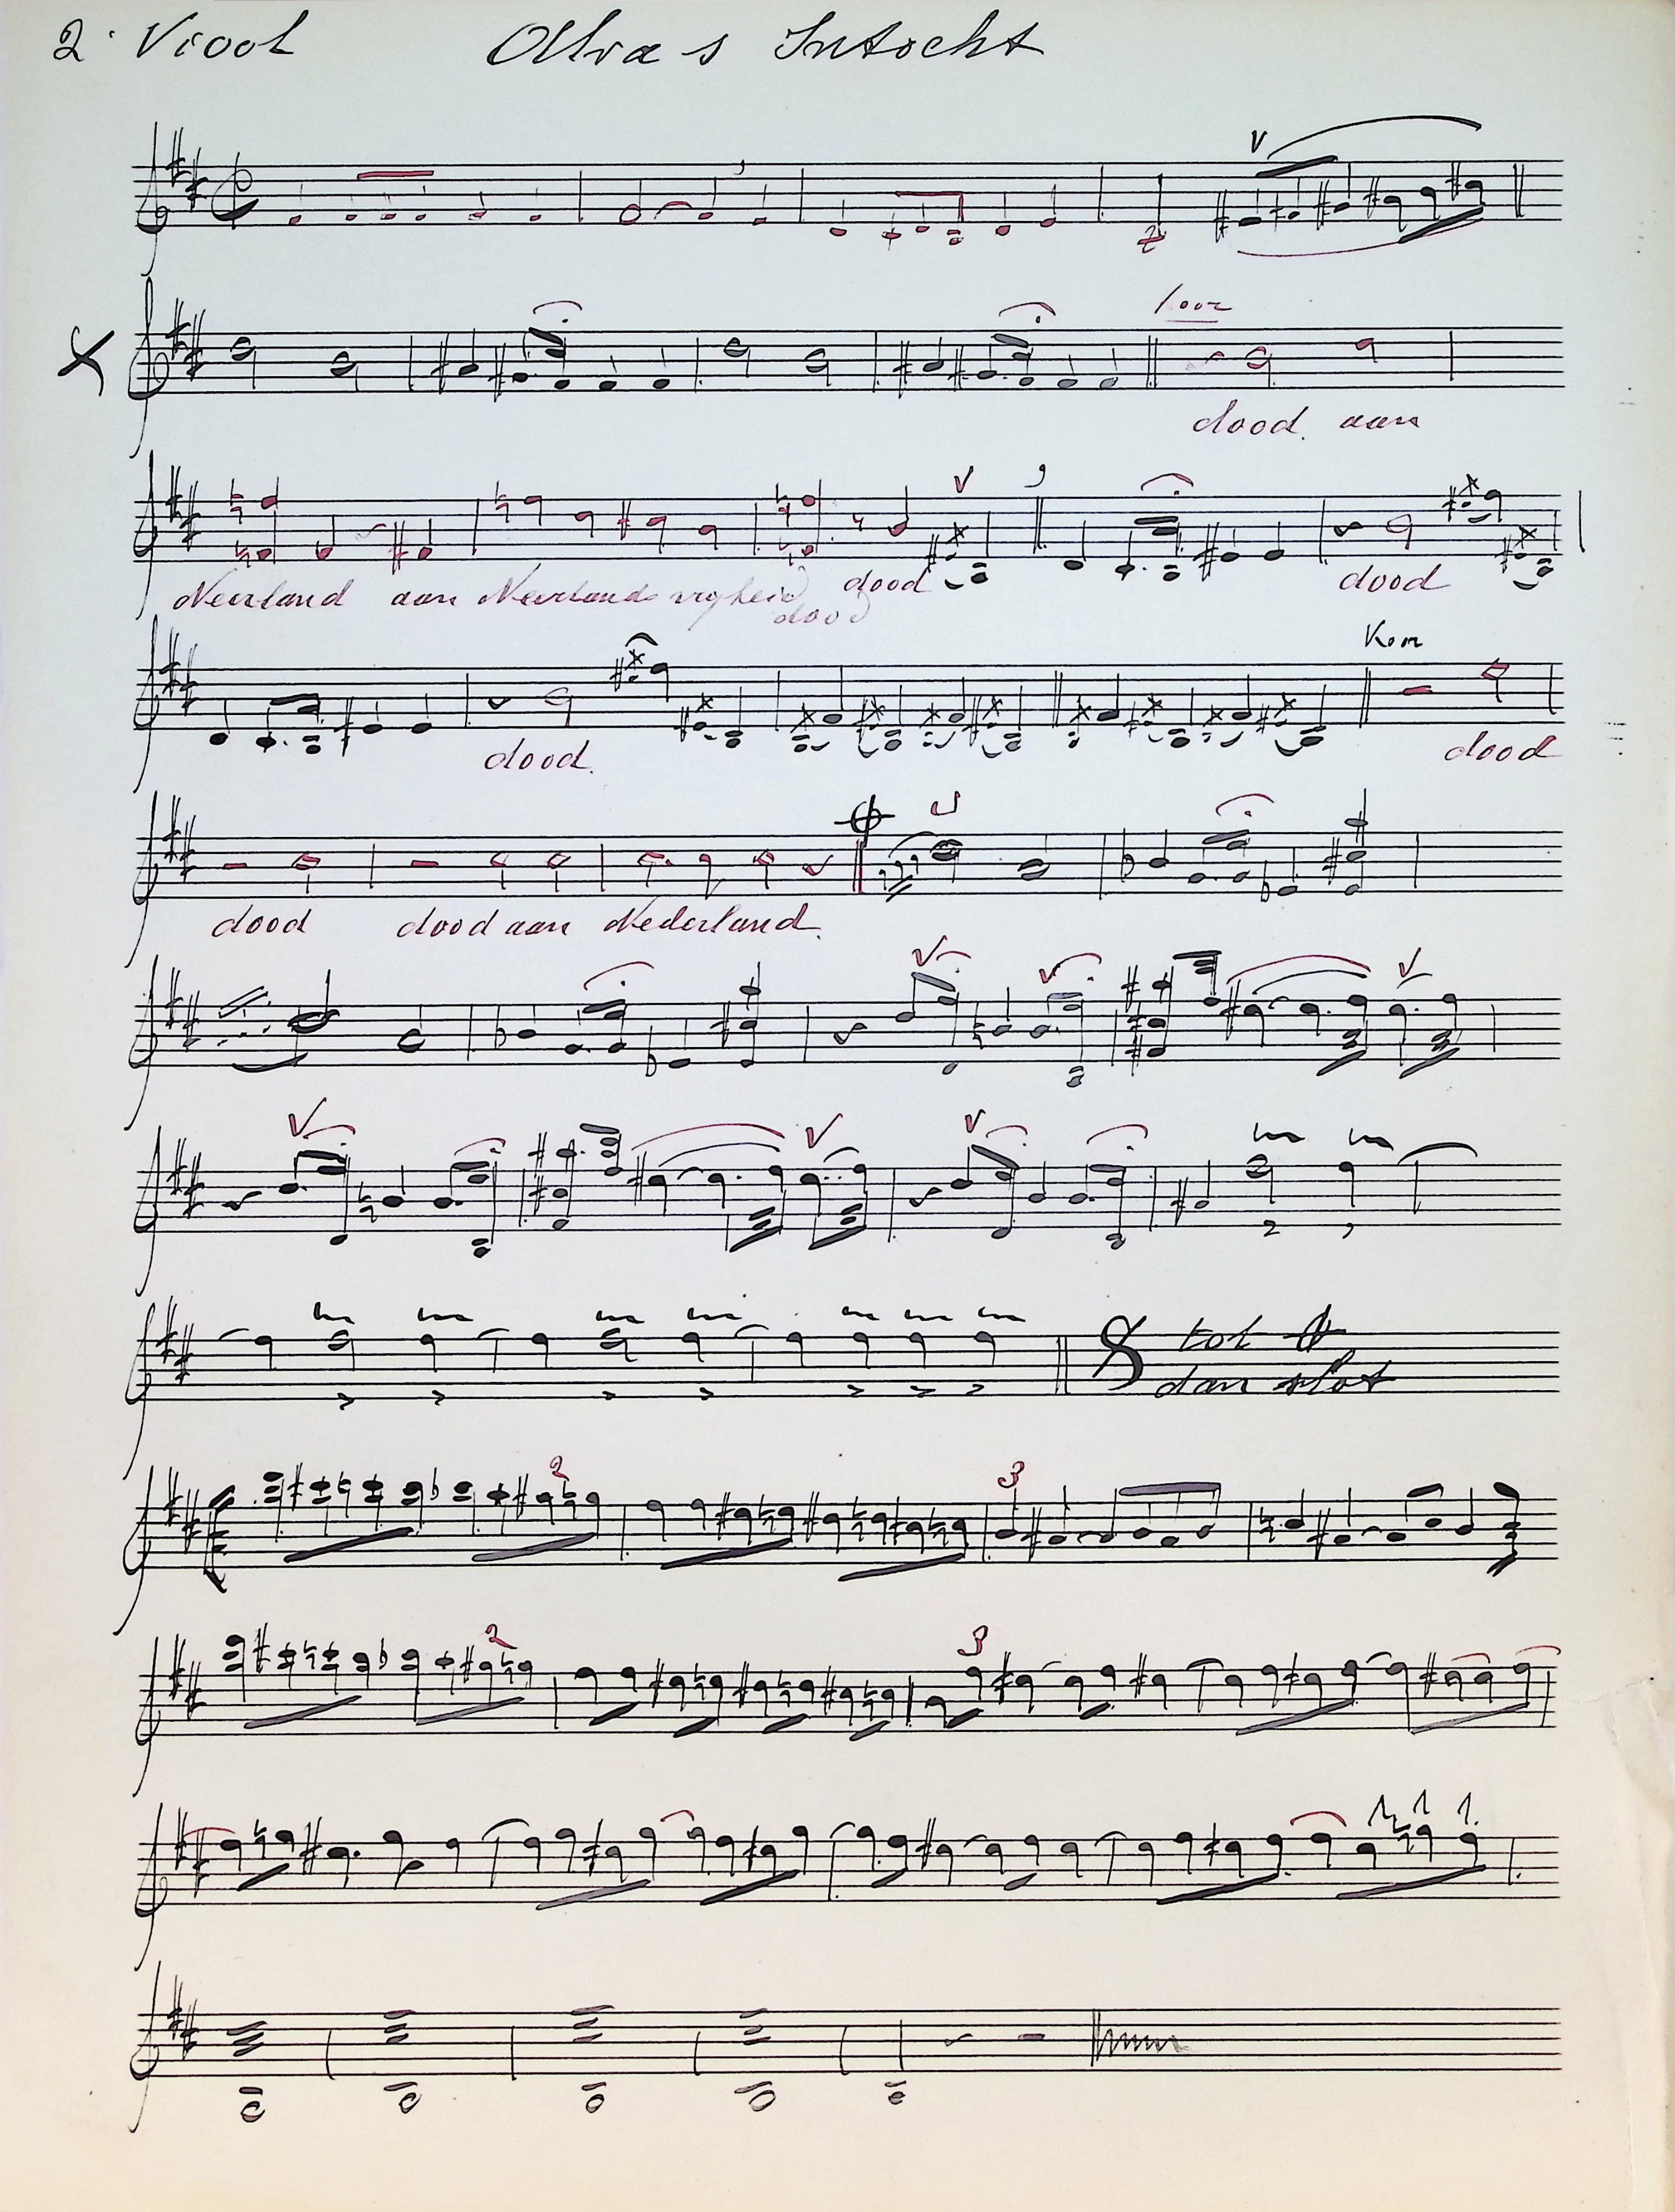 2. Viool Alva s Intocht
dood. aan
Neerland aan Neerlands vryheid dood
dood
dood
dood.
dood
dood dood aan Nederland.
2
tot
dan slot
2
3
2
3
1 1 1.